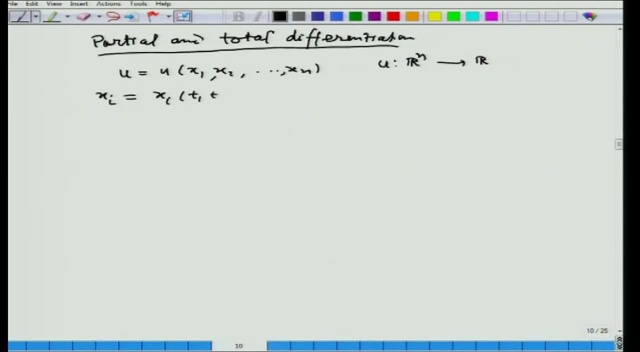 File Edit View Insert Actions Tools Help
Partial and total differentiation
u = u (x₁, x₂, ..., xₙ) u: ℝⁿ → ℝ
xᵢ = xᵢ (t₁ t
10 / 25
10